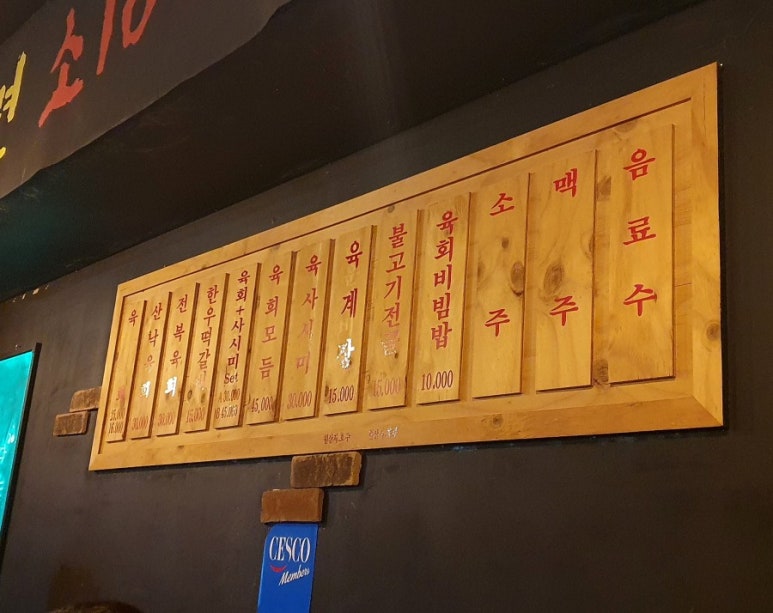 소
육
회
25,000
산낙육회
30,000
전복육회
30,000
한우떡갈비
15,000
육회+사시미
Set
A 30,000
B 45,000
육회모듬
45,000
육사시미
30,000
육계장
15,000
불고기전골
15,000
육회비빔밥
10,000
소주
맥주
음료수
CESCO
Members